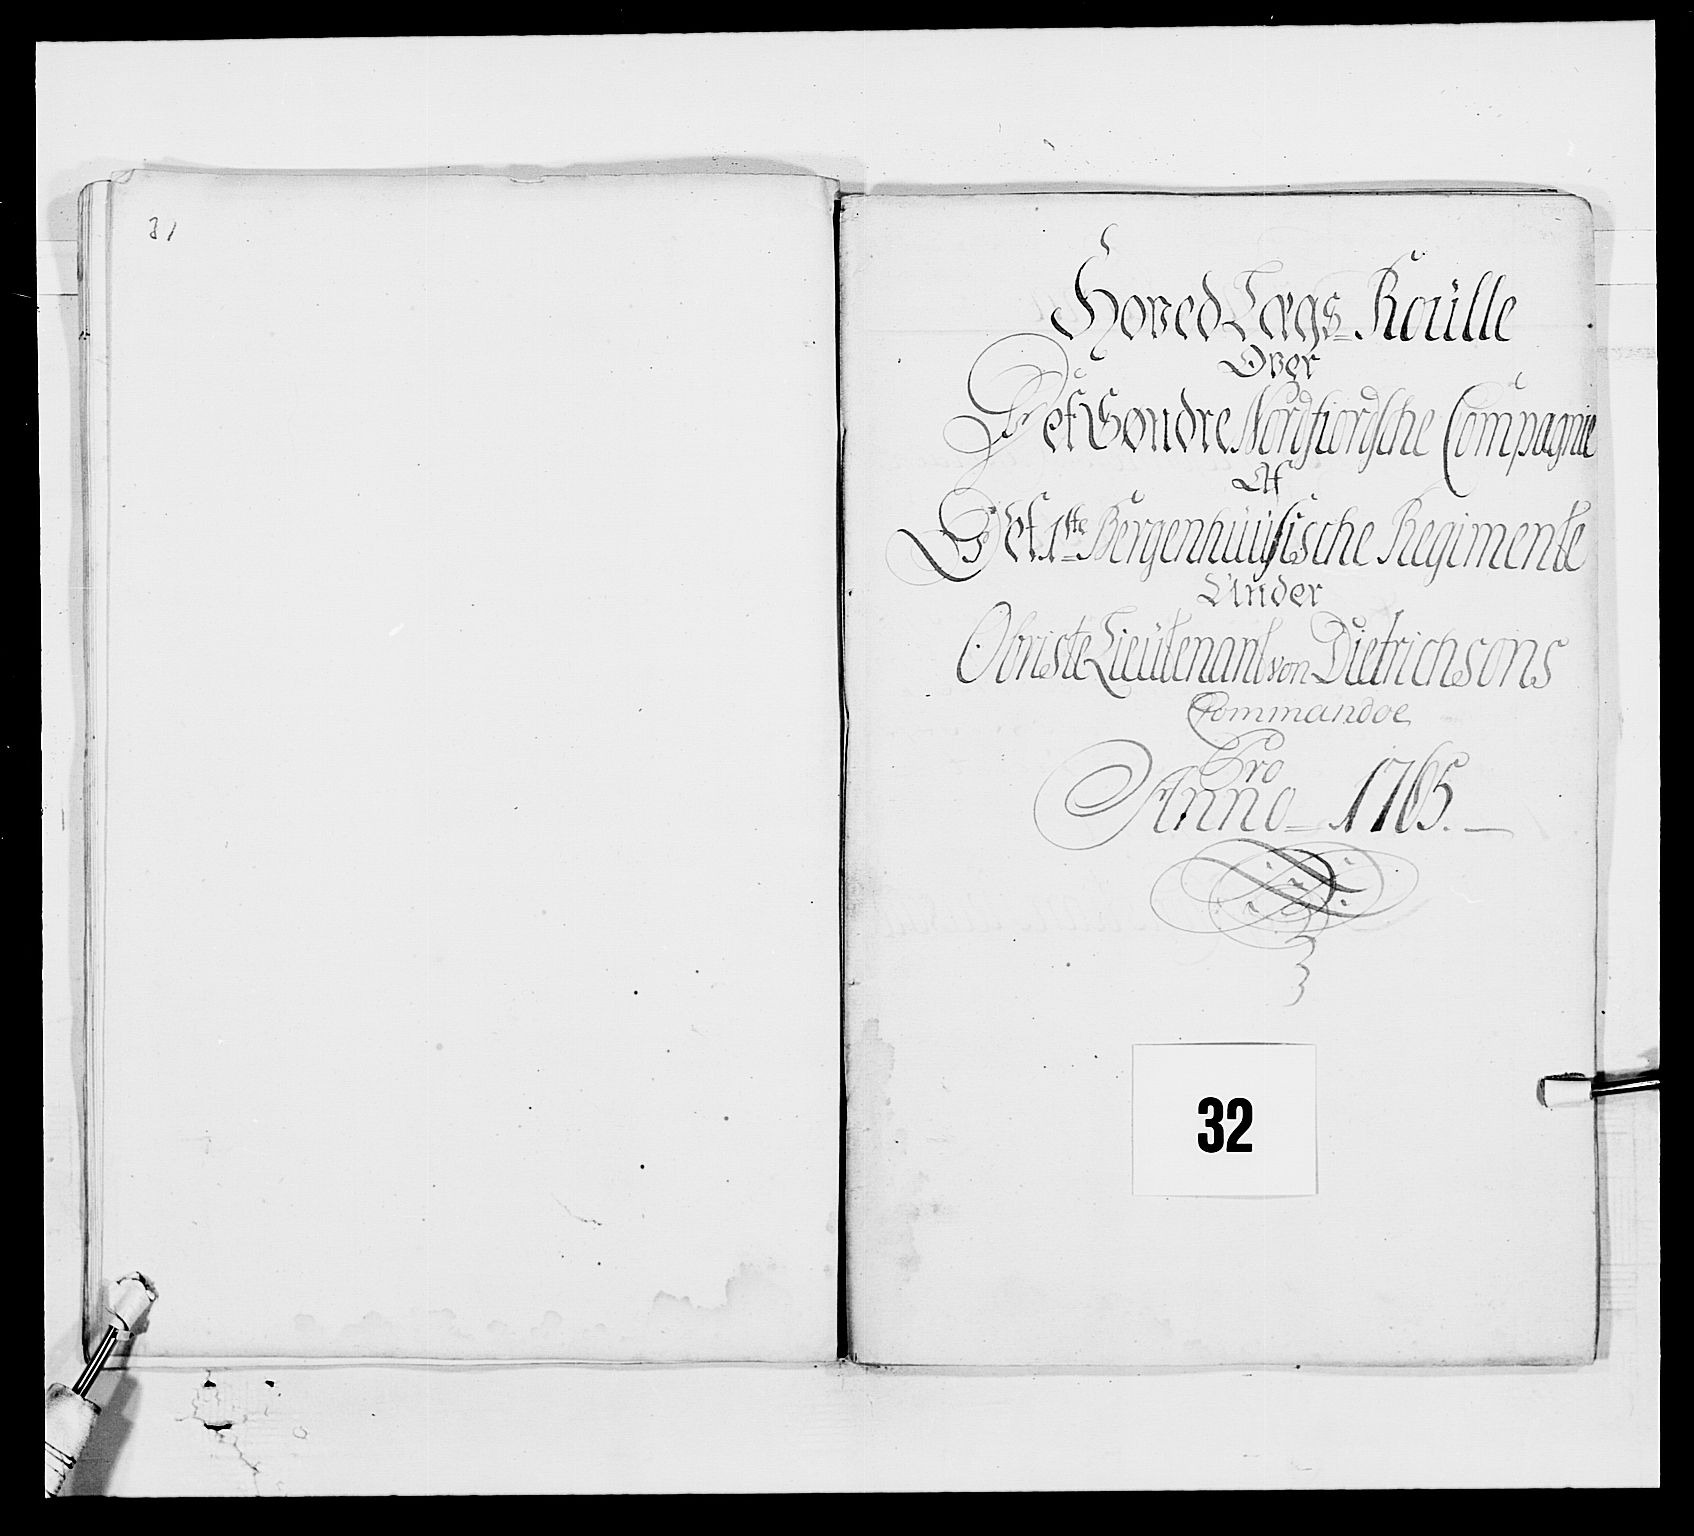 31
Hoved Lægs-Roülle
Over
Det Söndre Nordfiordsche Compagnie
Af
Det 1ste Bergenhüüsische Regimente
Under
Obriste Lieütenant von Dietrichsons
Commandoe
Pro
Anno 1765.
32